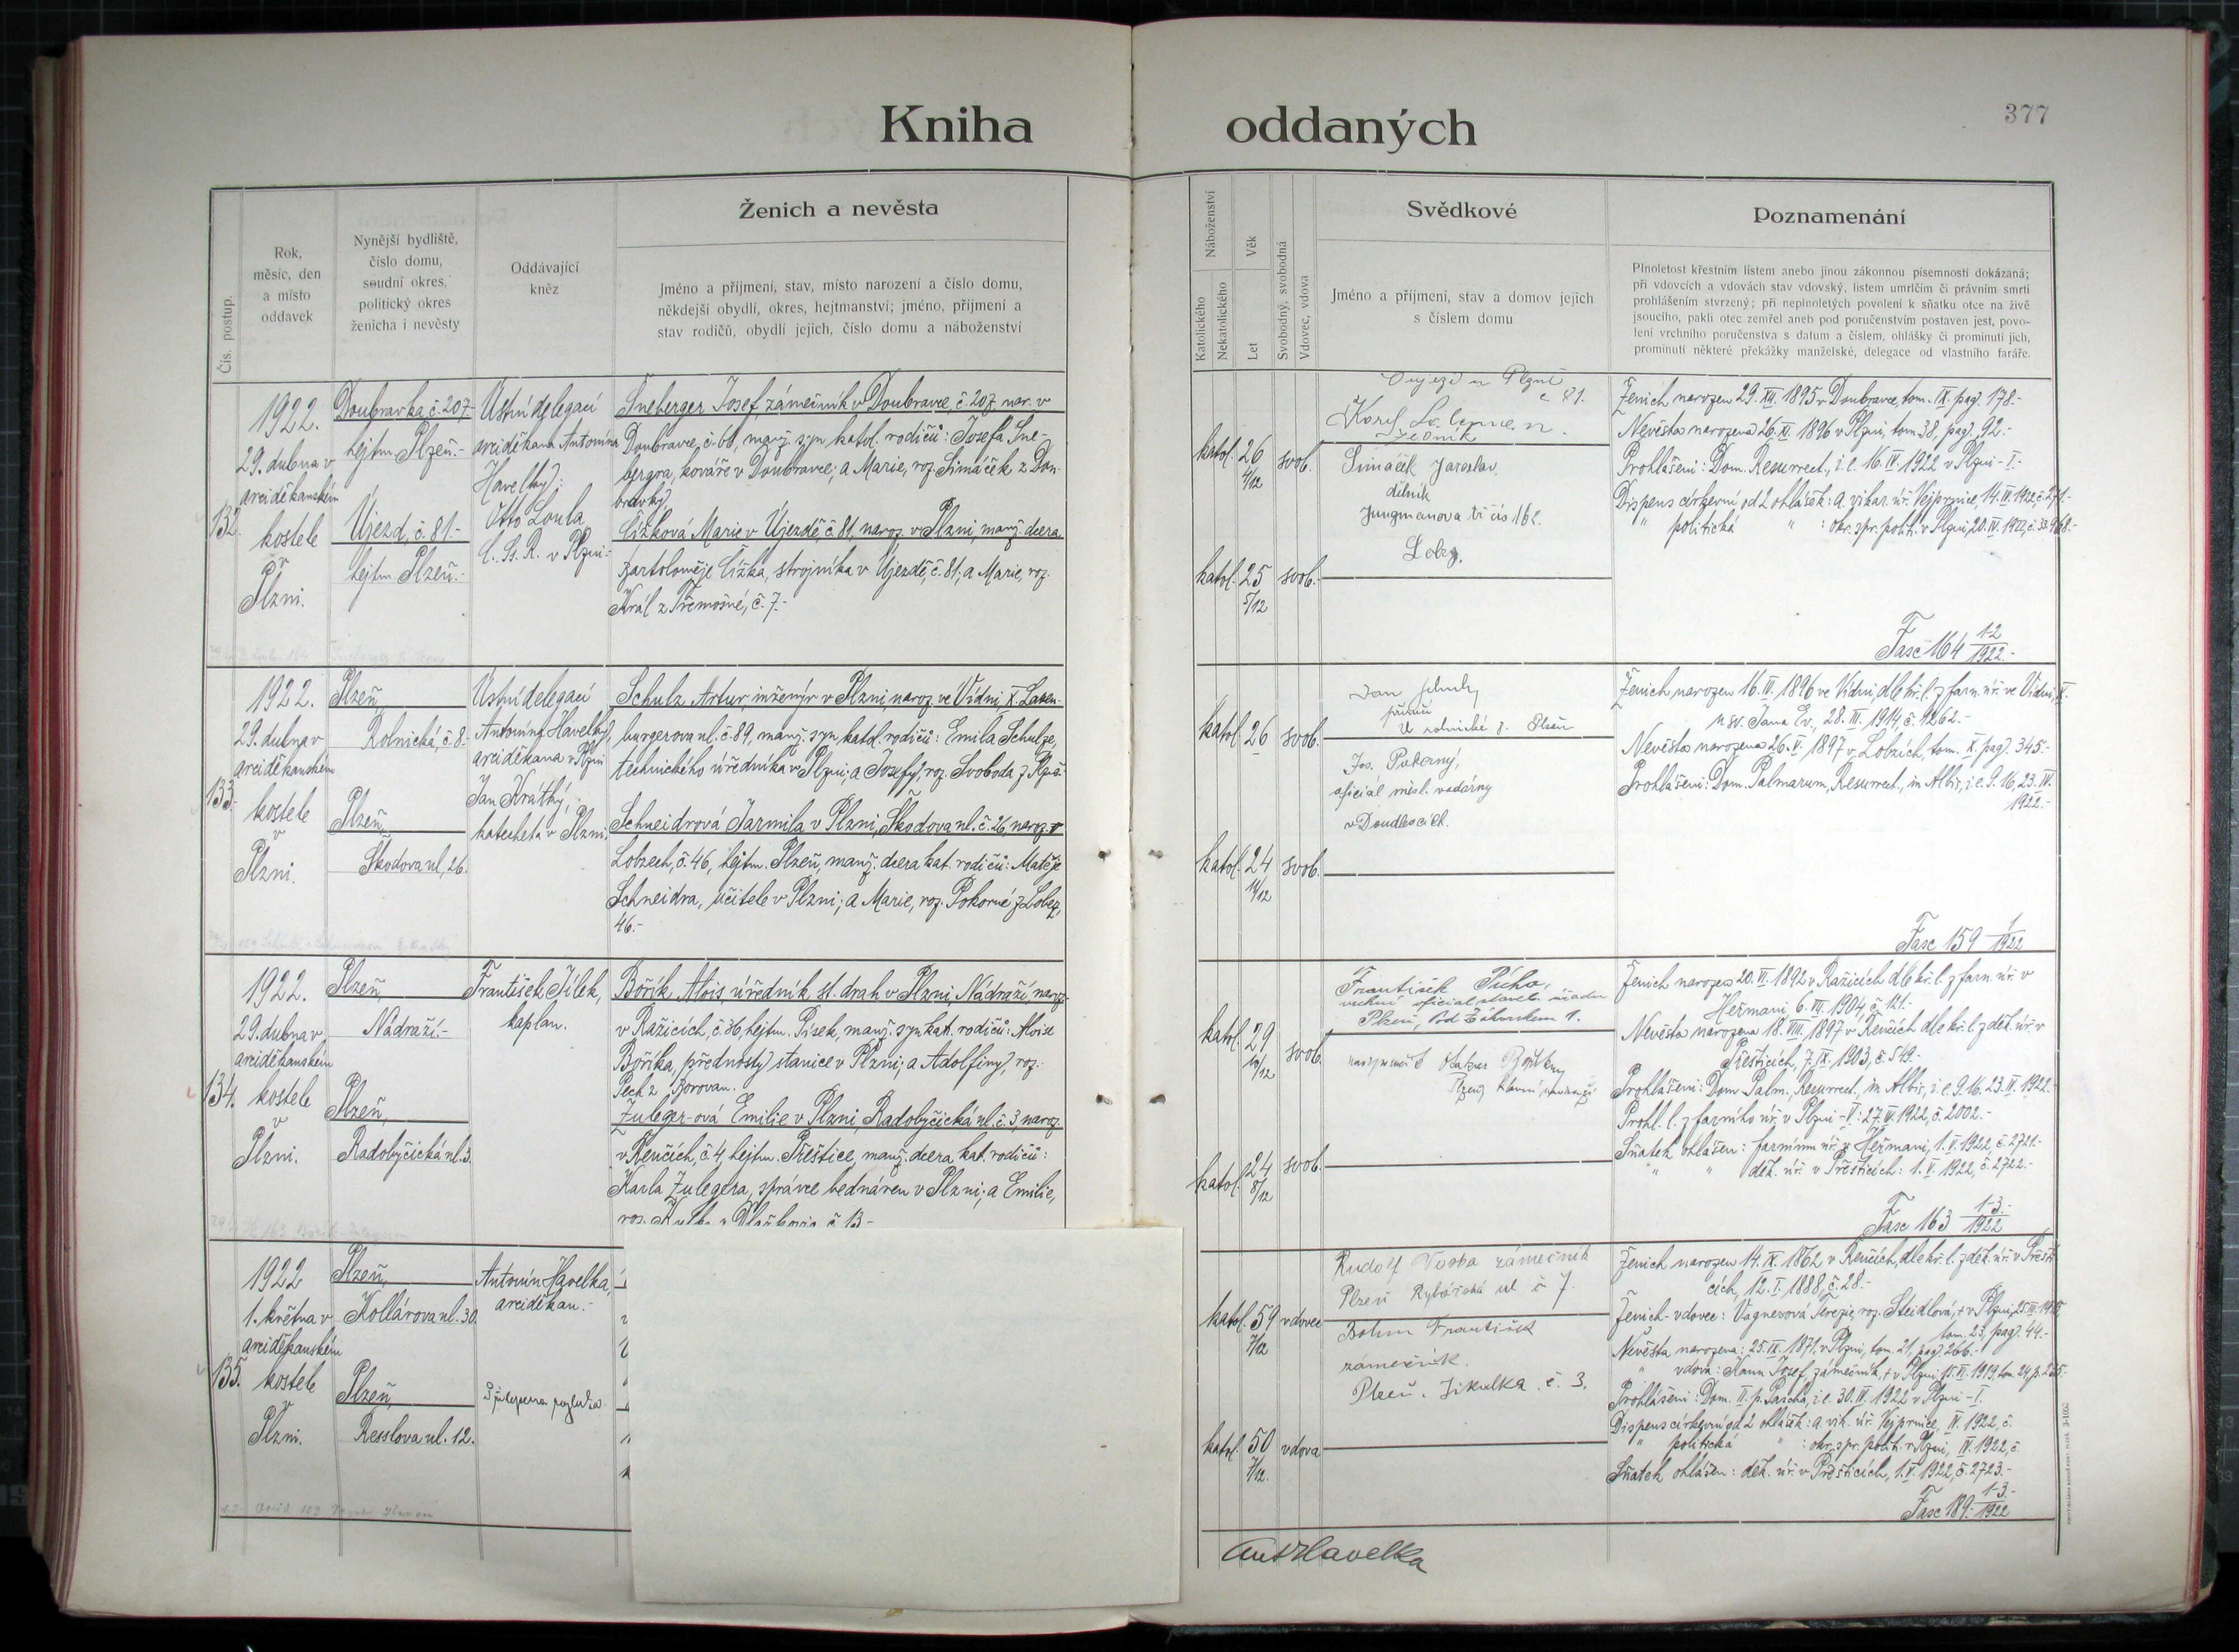 Kniha oddaných
377
Čís. postup.
Rok,
měsíc, den
a místo
oddavek
Nynější bydliště,
číslo domu,
soudní okres,
politický okres
ženicha i nevěsty
Oddávající
kněz
Ženich a nevěsta
Jméno a příjmení, stav, místo narození a číslo domu,
někdejší obydlí, okres, hejtmanství; jméno, příjmení a
stav rodičů, obydlí jejich, číslo domu a náboženství
Náboženství
Katolického
Nekatolického
Věk
Let
Svobodný, svobodná
Vdovec, vdova
Svědkové
Jméno a příjmení, stav a domov jejich
s číslem domu
Poznamenání
Plnoletost křestním listem anebo jinou zákonnou písemností dokázaná;
při vdovcích a vdovách stav vdovský, listem umrlčím či právním smrti
prohlášením stvrzený; při neplnoletých povolení k sňatku otce na živě
jsoucího, pakli otec zemřel aneb pod poručenstvím postaven jest, povo-
lení vrchního poručenstva s datum a číslem, ohlášky či prominutí jich,
prominutí některé překážky manželské, delegace od vlastního faráře.
132.
1922.
29. dubna v
arciděkanském
kostele
v
Plzni.
Doubravka, č. 207,
hejtm. Plzeň.-
Újezd, č. 81.-
hejtm. Plzeň.-
Ústní delegací
arciděkana Antonína
Havelky:
Otto Loula
C. Ss. R. v Plzni.-
Šneberger Josef, zámečník v Doubravce, č. 207, nar. v
Doubravce, č. 60, manž. syn katol. rodičů: Josefa Šne-
bergra, kováře v Doubravce; a Marie, roz. Šimáček z Dou-
bravky.
Čížková Marie v Újezdě, č. 81, naroz. v Plzni, manž. dcera
Bartoloměje Čížka, strojníka v Újezdě, č. 81; a Marie, roz.
Král z Třemošné, č. 7.-
katol. 26 4/12 svob.
katol. 25 5/12 svob.
Újezd u Plzně
č 81.
Karel
zedník
Šimáček Jaroslav
dělník
Jungmanova tř čís 162.
Lobzy.
Ženich narozen 29. XII. 1895 v Doubravce, tom. IX. pag. 178.-
Nevěsta narozena 26. XI. 1896 v Plzni, tom. 38, pag. 92.-
Prohlášeni: Dom. Resurrect., i. e. 16. IV. 1922 v Plzni - I.-
Dispens církevní od 2 ohlášek: a vikar. úř. Vejprnice, 14. IV. 1922, č. 271.-
" politická " : okr. spr. polit. v Plzni, 20. IV. 1922, č. 33968.-
Fasc 164 1-2/1922.-
133.
1922.
29. dubna v
arciděkanském
kostele
v
Plzni.
Plzeň,
Rolnická, č. 8.-
Plzeň,
Škodova ul. 26.
Ústní delegací
Antonína Havelky,
arciděkana v Plzni
Jan Krátký,
katecheta v Plzni.
Schulz Artur, inženýr v Plzni, naroz. ve Vídni, X. Laxen-
burgerova ul. č. 89, manž. syn katol. rodičů: Emila Schulze,
technického úředníka v Plzni; a Josefy, roz. Svoboda z
Schneidrová Jarmila v Plzni, Škodova ul. č. 26, naroz. v
Lobzech, č. 46, hejtm. Plzeň, manž. dcera kat. rodičů: Matěje
Schneidra, učitele v Plzni; a Marie, roz. Pokorné z Lobez,
46.-
katol. 26 svob.
katol. 24 11/12 svob.
Jan
U rolnické 8. Plzeň
Jos. Pokorný,
oficiál měst. vodárny
v Doudlevcích.
Ženich narozen 16. IV. 1896 ve Vídni, dle kř. l. z farn. úř. ve Vídni, X.
u sv. Jana Ev., 28. III. 1914 č. 4262.-
Nevěsta narozena 26. V. 1897 v Lobzích, tom. X. pag. 345.-
Prohlášeni: Dom. Palmarum, Resurrect., in Albis, i. e. 9. 16. 23. IV.
1922.-
Fasc 159 1/1922
134.
1922.
29. dubna v
arciděkanském
kostele
v
Plzni.
Plzeň,
Nádraží.-
Plzeň,
Radobyčická ul. 3.
František Jílek,
kaplan.
Bořík Alois, úředník st. drah v Plzni, Nádraží, naroz.
v Ražicích, č. 36, hejtm. Písek, manž. syn kat. rodičů: Aloise
Boříka, přednosty stanice v Plzni; a Adolfiny, roz.
Pech z Borovan.
Zuleger-ová Emilie v Plzni, Radobyčická ul. č. 3, naroz.
v Řenčích, č. 4, hejtm. Přeštice, manž. dcera kat. rodičů:
Karla Zulegera, správce bednáren v Plzni; a Emilie,
katol. 29 10/12 svob.
katol. 24 8/12 svob.
František Pícha,
vrchní oficial staveb. úřadu
Plzeň, Pod Záhorskem 1.
Plzeň, hlavní nádraží
Ženich narozen 20. VI. 1892 v Ražicích dle kř. l. z farn. úř. v
Heřmani 6. III. 1904, č. 121.-
Nevěsta narozena 18. VIII. 1897 v Řenčích dle kř. l. z děk. úř. v
Přešticích, 7. IX. 1903, č. 549.-
Prohlášeni: Dom. Palm., Resurrect., in Albis, i. e. 9. 16. 23. IV. 1922.-
Prohl. l. z farního úř. v Plzni - V: 27. IV. 1922, č. 2002.-
Sňatek ohlášen: farnímu úř. v Heřmani, 1. V. 1922, č. 2721.-
" " děk. úř. v Přešticích: 1. V. 1922, č. 2722.-
Fasc 163 1-3.-/1922
135.
1922
1. května v
arciděkanském
kostele
v
Plzni.
Plzeň,
Kollárova ul. 30.
Plzeň,
Resslova ul. 12.
Antonín Havelka,
arciděkan.-
katol. 59 7/12 vdovec
katol. 50 7/12. vdova
Rudolf Vosba zámečník
Plzeň Rybářská ul č 7.
Bohm František
zámečník.
Plzeň. Jikalka č. 3.
Ženich narozen 14. IX. 1862 v Řenčích, dle kř. l. z děk. úř. v Přešti-
cích, 12. I. 1888, č. 28.-
Ženich - vdovec: Vagnerová Terezie, roz. Steidlová, + v Plzni,
tom. 23, pag. 44.-
Nevěsta narozena: 25. IX. 1871 v Plzni, tom. 21, pag. 266.-
" vdova: Hann Josef, zámečník, + v Plzni 15. VI. 1919, tom. 24, p. 265.-
Prohlášeni: Dom. II. p. Pascha, i. e. 30. IV. 1922 v Plzni - I.
Dispens církevní od 2 ohlášek: a vik. úř. Vejprnice, IV. 1922, č.
" politická " : okr. spr. polit. v Plzni, IV. 1922, č.
Sňatek ohlášen: děk. úř. v Přešticích, 1. V. 1922, č. 2723.-
Fasc 189 1-3.-/1922
Ant Havelka